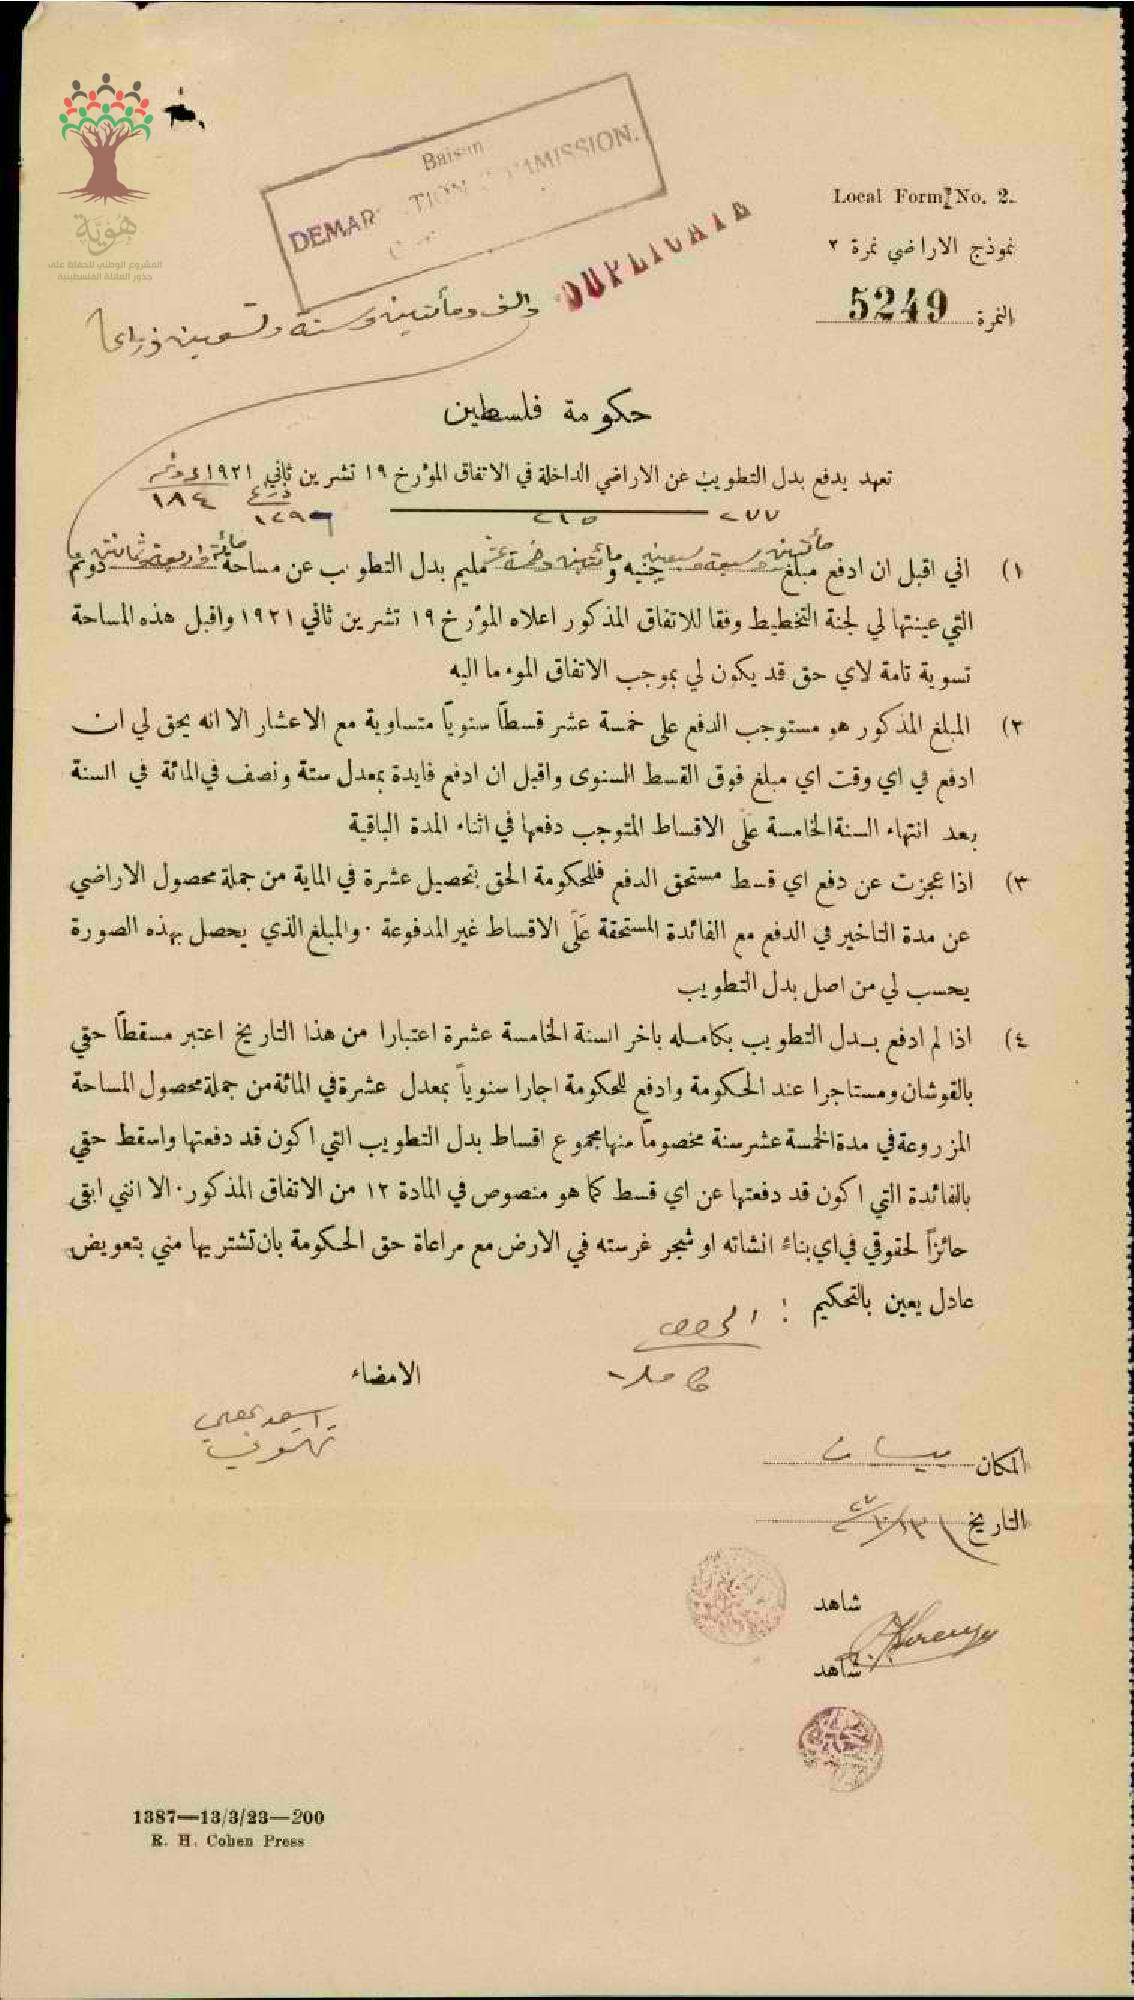 هُوِيَّة
المشروع الوطني للحفاظ على
جذور العائلة الفلسطينية
Baisan
DEMAR TION COMMISSION.
DUPLICATE
Local Form No. 2.
نموذج الاراضي نمرة ٢
النمرة 5249
والف ومأتين وستة وتسعين ذراعا
حكومة فلسطين
تعهد بدفع بدل التطويب عن الاراضي الداخلة في الاتفاق المؤرخ ١٩ تشرين ثاني ١٩٢١
دونم ١٨٤
ذراع ١٢٩٦
٢٧٧ ٢١٥
١) اني اقبل ان ادفع مبلغ مأتين وسبعة وسبعين جنيه و مائتين وخمسة عشر مليم بدل التطويب عن مساحة مائة واربعة وثمانين دونم
التي عينتها لي لجنة التخطيط وفقا للاتفاق المذكور اعلاه المؤرخ ١٩ تشرين ثاني ١٩٢١ واقبل هذه المساحة
تسوية تامة لاي حق قد يكون لي بموجب الاتفاق الموء ما اليه
٢) المبلغ المذكور هو مستوجب الدفع على خمسة عشر قسطاً سنوياً متساوية مع الاعشار الا انه يحق لي ان
ادفع في اي وقت اي مبلغ فوق القسط السنوى واقبل ان ادفع فايدة بمعدل ستة ونصف في المائة في السنة
بعد انتهاء السنة الخامسة عَلَى الاقساط المتوجب دفعها في اثناء المدة الباقية
٣) اذا عجزت عن دفع اي قسط مستحق الدفع فللحكومة الحق بتحصيل عشرة في الماية من جملة محصول الاراضي
عن مدة التاخير في الدفع مع الفائدة المستحقة عَلَى الاقساط غير المدفوعة ٠ والمبلغ الذي يحصل بهذه الصورة
يحسب لي من اصل بدل التطويب
٤) اذا لم ادفع بدل التطويب بكامله باخر السنة الخامسة عشرة اعتبارا من هذا التاريخ اعتبر مسقطاً حقي
بالقوشان ومستاجرا عند الحكومة وادفع للحكومة اجارا سنوياً بمعدل عشرة في المائة من جملة محصول المساحة
المزروعة في مدة الخمسة عشر سنة مخصوماً منها مجموع اقساط بدل التطويب التي اكون قد دفعتها واسقط حقي
بالفائدة التي اكون قد دفعتها عن اي قسط كما هو منصوص في المادة ١٢ من الاتفاق المذكور ٠ الا انني ابقى
حائزاً لحقوقي في اي بناء انشاته او شجر غرسته في الارض مع مراعاة حق الحكومة بان تشتريها مني بتعويض
عادل يعين بالتحكيم :
الحصص
كاملا
الامضاء
المكان بيسان
التاريخ
شاهد
شاهد
1387—13/3/23—200
R. H. Cohen Press